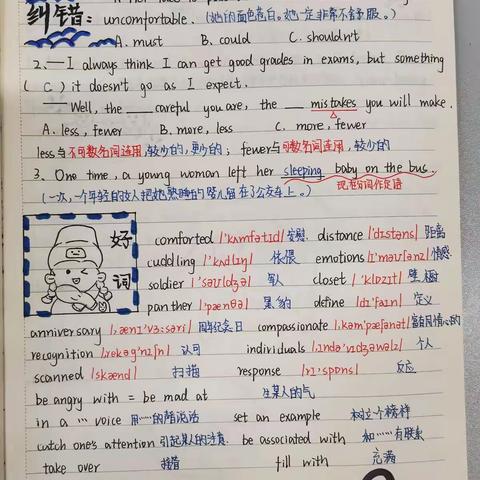 纠错:
uncomfortable. (她的面色苍白。她一定非常不舒服。)
A. must B. could C. shouldn't
2.— I always think I can get good grades in exams, but something
( C ) it doesn't go as I expect.
— Well, the __ careful you are, the __ mistakes you will make.
A. less, fewer B. more, less C. more, fewer
less与不可数名词连用,较少的,更少的; fewer与可数名词连用,较少的
3. One time, a young woman left her sleeping baby on the bus.
(一次,一个年轻的女人把她熟睡的婴儿留在了公交车上。) 现在分词作定语
好词
comforted /'kʌmfətɪd/ 安慰 distance /'dɪstəns/ 距离
cuddling /'kʌdlɪŋ/ 依偎 emotions /ɪ'məʊʃənz/ 情感
soldier /'səʊldʒə/ 军人 closet /'klɒzɪt/ 壁橱
panther /'pænθə/ 黑豹 define /dɪ'faɪn/ 定义
anniversary /ˌænɪ'vɜːsəri/ 周年纪念日 compasionate /kəm'pæʃənət/ 富有同情心的
recognition /ˌrekəg'nɪʃn/ 认可 individuals /ˌɪndə'vɪdʒəwəlz/ 个人
scanned /skænd/ 扫描 response /rɪ'spɒns/ 反应
be angry with = be mad at 生某人的气
in a … voice 用……的声说话 set an example 树立个榜样
catch one's attention 引起某人的注意 be associated with 和……有联系
take over 接替 fill with 充满